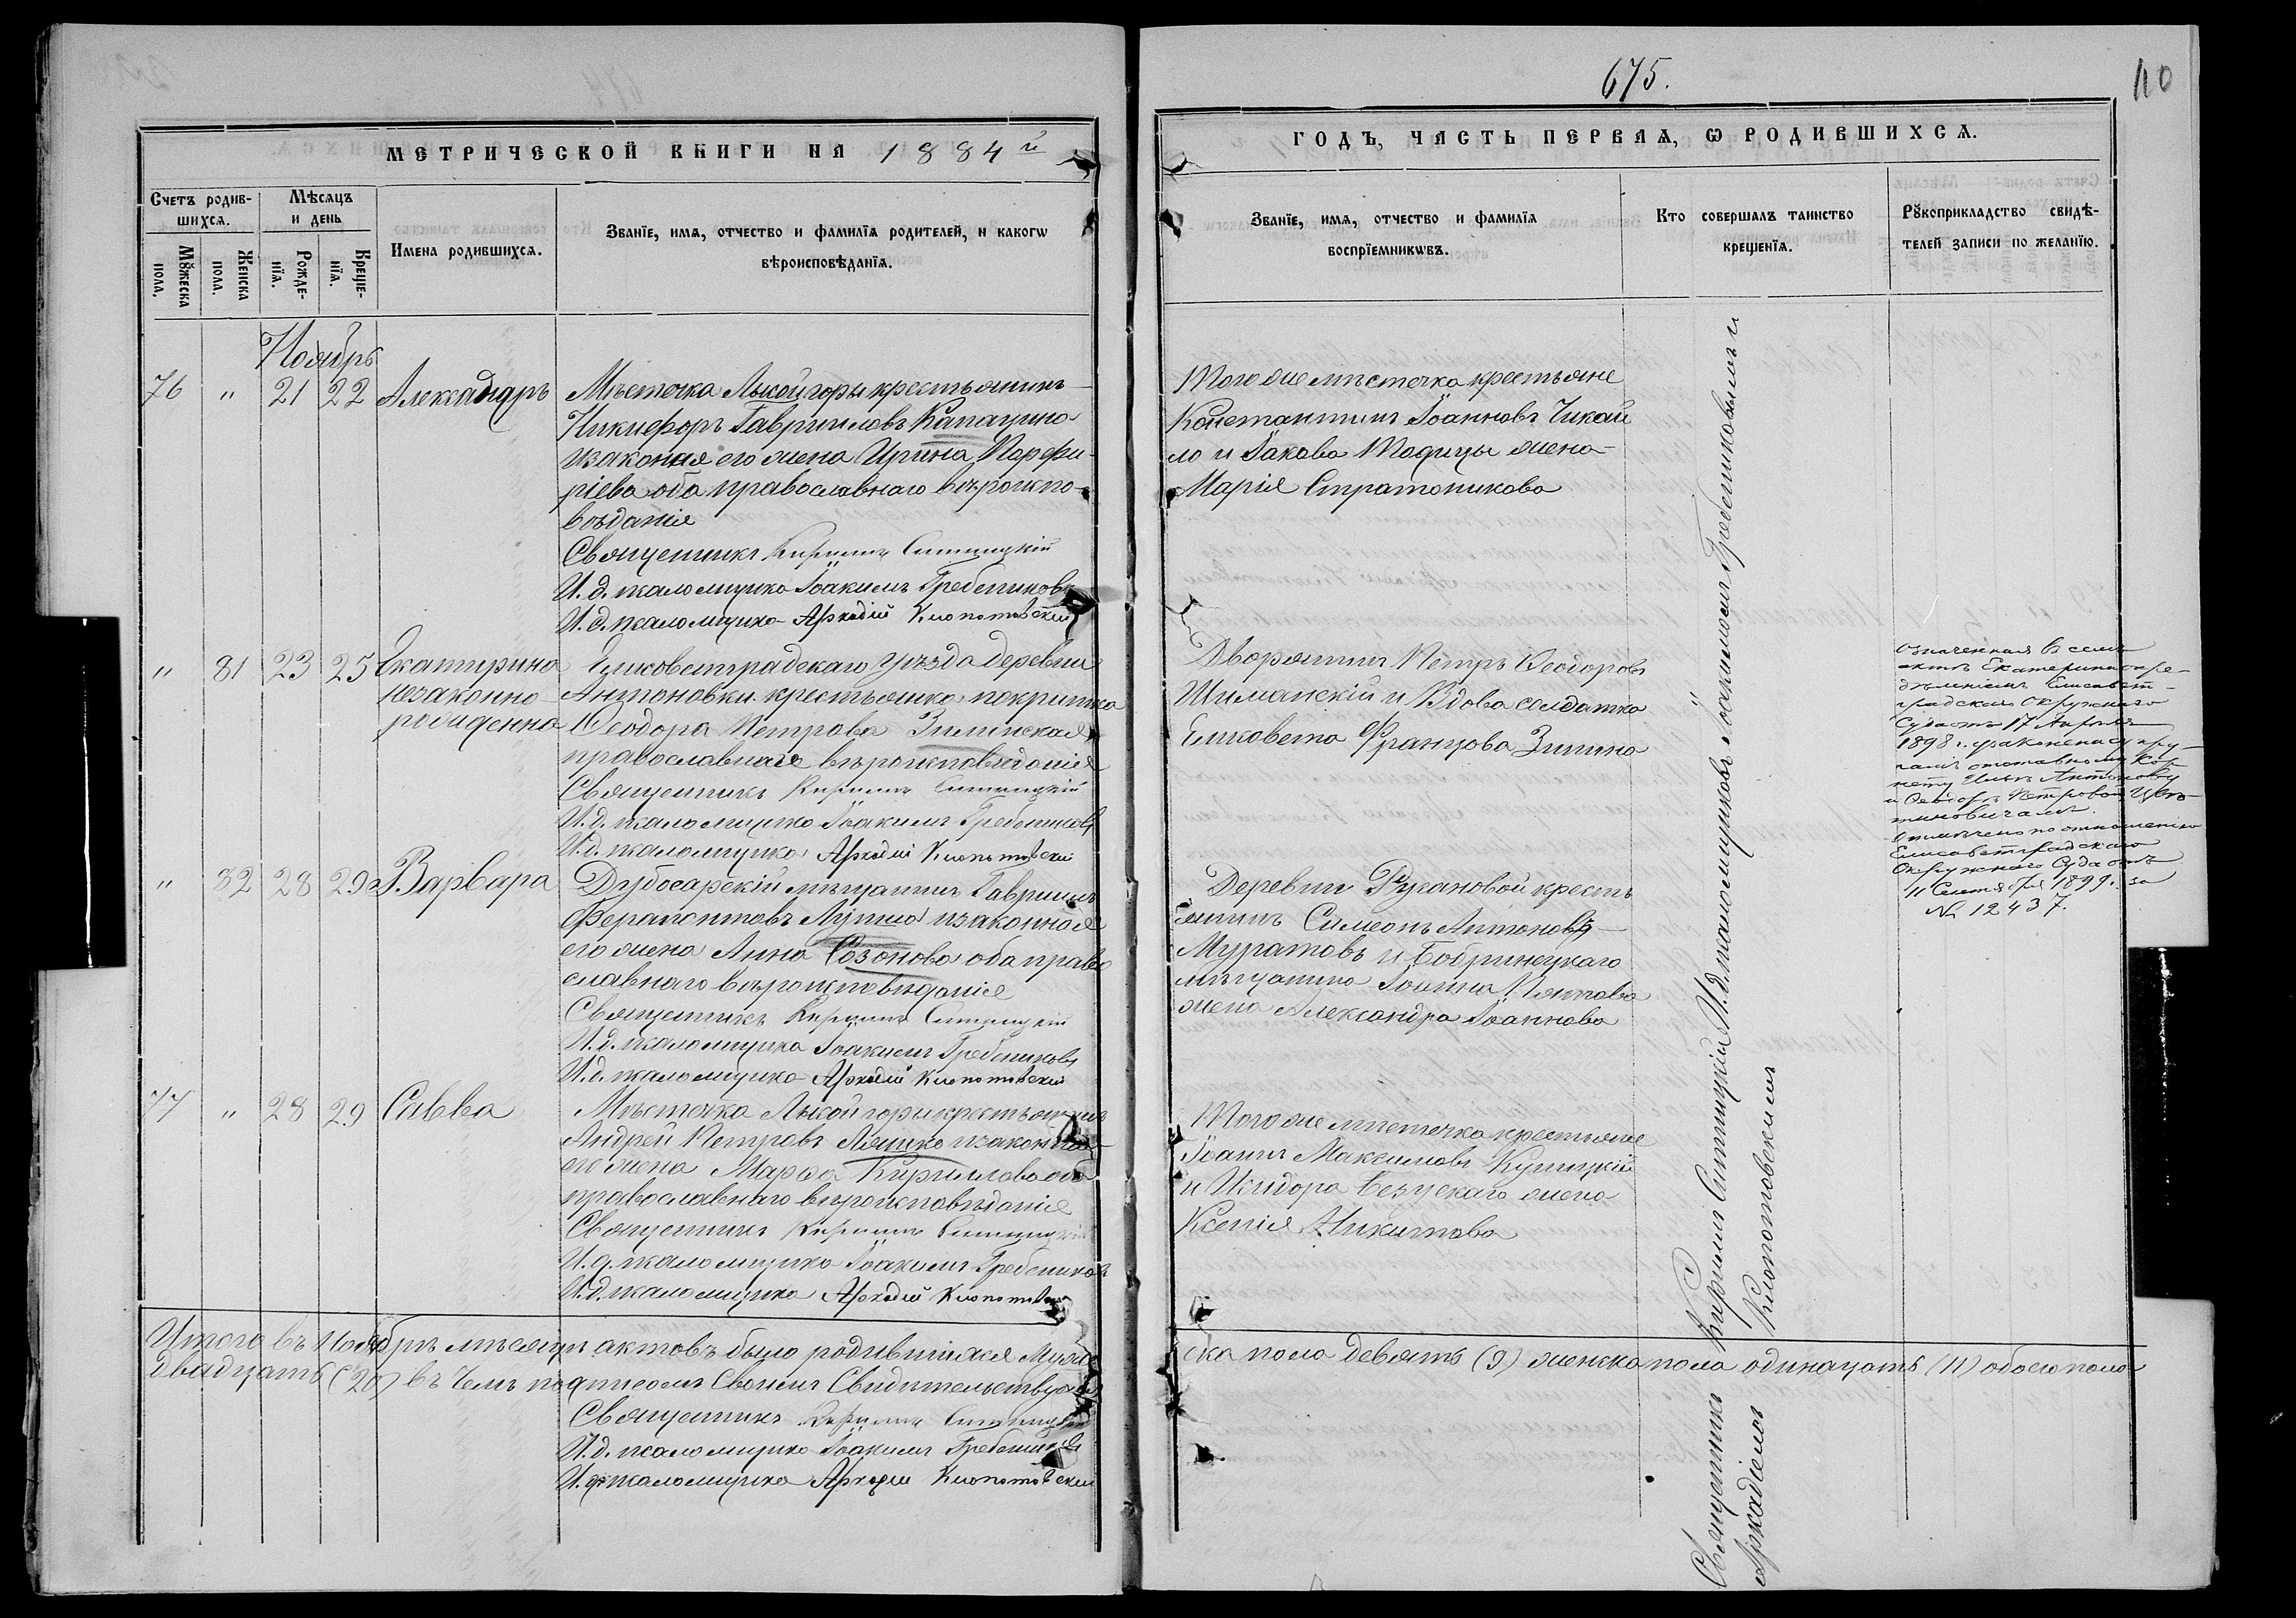 675.
110
МЕТРИЧЕСКОЙ КНИГИ НА 1884й
ГОДЪ, ЧАСТЬ ПЕРВАЯ, Ѡ РОДИВШИХСЯ.
Счетъ родив-
шихся.
Мѣсяцъ
и день
Мꙋжеска
пола.
Женска
пола.
Рожде-
нїя.
Креще-
нїя.
Имена родившихся.
Званїе, имя, отчество и фамилїя родителей, и какогѡ
вѣроисповѣданїя.
Званїе, имя, отчество и фамилїя
воспрїемникѡвъ.
Кто совершалъ таинство
крещенїя.
Рꙋкоприкладство свидѣ-
телей записи по желанїю.
Ноябрь
76 " 21 22 Александръ
Мѣстечка Лысой горы крестьянинъ
Никифоръ Гавриловъ
изаконная его жена Ирина Порфи-
ріева оба православнаго вѣроиспо-
вѣданія
Священникъ Кириллъ Синицкій
И.д. псаломщика Іоакимъ Гребенниковъ
И.д. псаломщика Аркадій Клопотовскій
Того же мѣстечка крестьяне
Константинъ Іоанновъ Чикай
ло и Іакова жена
Марія Стратоникова
" 81 23 25 Екатерина
незаконно
рожденна
Елисаветградскаго уѣзда деревни
Антоновки крестьянка покритка
Ѳеодора Петрова
православнаго вѣроисповѣданія
Священникъ Кириллъ Синицкій
И.д. псаломщика Іоакимъ Гребенниковъ
И.д. псаломщика Аркадій Клопотовскій
Дворянинъ Петръ Ѳеодоровъ
Шиманскій и Вдова солдатка
Елисавета Францова Зинина
означенная в семъ
актѣ Екатерина опре-
дѣленіемъ Елисавет-
градскаго Окружнаго
Суда отъ 17 Апрѣля
1898 г. узаконена супру-
гами отставному Кор-
нету Ильѣ Антонову
и Ѳеодорѣ Петровой
Отмѣчено по отношенію
Елисаветградскаго
Окружнаго Суда отъ
11 Сентября 1899 г. за
№ 12437.
" 82 28 29 Варвара
Дубосарскій мѣщанинъ Гавріилъ
Ферапонтовъ Лупша изаконная
его жена Анна Созонова оба право
славнаго вѣроисповѣданія
Священникъ Кириллъ Синицкій
И.д. псаломщика Іоакимъ Гребенниковъ
И.д. псаломщика Аркадій Клопотовскій
Деревни Русановой кресть
янинъ Симеонъ Антоновъ
Муратовъ и Бобринецкаго
мѣщанина Іоанна
жена Александра Іоаннова
77 " 28 29 Савва
Мѣстечка Лысой горы крестьянинъ
Андрей Петровъ Ляшко изаконная
его жена Марѳа Кириллова оба
православнаго вѣроисповѣданія
Священникъ Кириллъ Синицкій
И.д. псаломщика Іоакимъ Гребенниковъ
И.д. псаломщика Аркадій Клопотовскій
Того же мѣстечка крестьяне
Іоаннъ Максимовъ Купицкій
и Исидора жена
Ксенія Никитова
Священникъ Кириллъ Синицкій И.д. псаломщиковъ Іоакимомъ Гребенниковымъ и
Аркадіемъ Клопотовскимъ
Итого въ Ноябрѣ мѣсяцѣ актовъ было родившихся Муже
ска пола девять (9) женска пола одинацать (11) обоего пола
двадцать (20) въ чемъ подписомъ своимъ Свидѣтельствуемъ
Священникъ Кириллъ Синицкій
И.д. псаломщика Іоакимъ Гребенниковъ
И.д. псаломщика Аркадій Клопотовскій